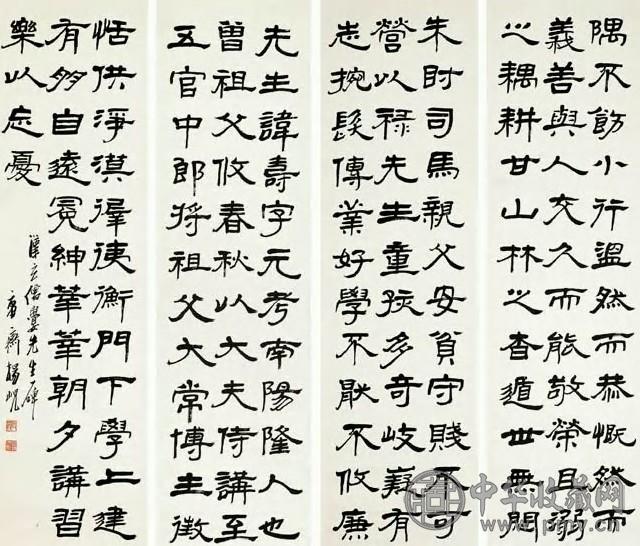 隅不飭小行溫然而恭慨然而
義善與人交久而能敬榮且溺
之耦耕甘山林之杳遁世無悶
朱司馬親父安貧守賤不可
營以祿先生童孩多奇岐嶷有
志捥髮傳業好學不厭不攸廉
先生諱壽字元考南陽隆人也
曾祖父攸春秋以大夫侍講至
五官中郎將祖父大常博士徵
恬佚淨漠徲徥衡門下學上達
有朋自遠冕紳莘莘朝夕講習
樂以忘憂
漢玄儒婁先生碑
庸齋楊峴
中华收藏网